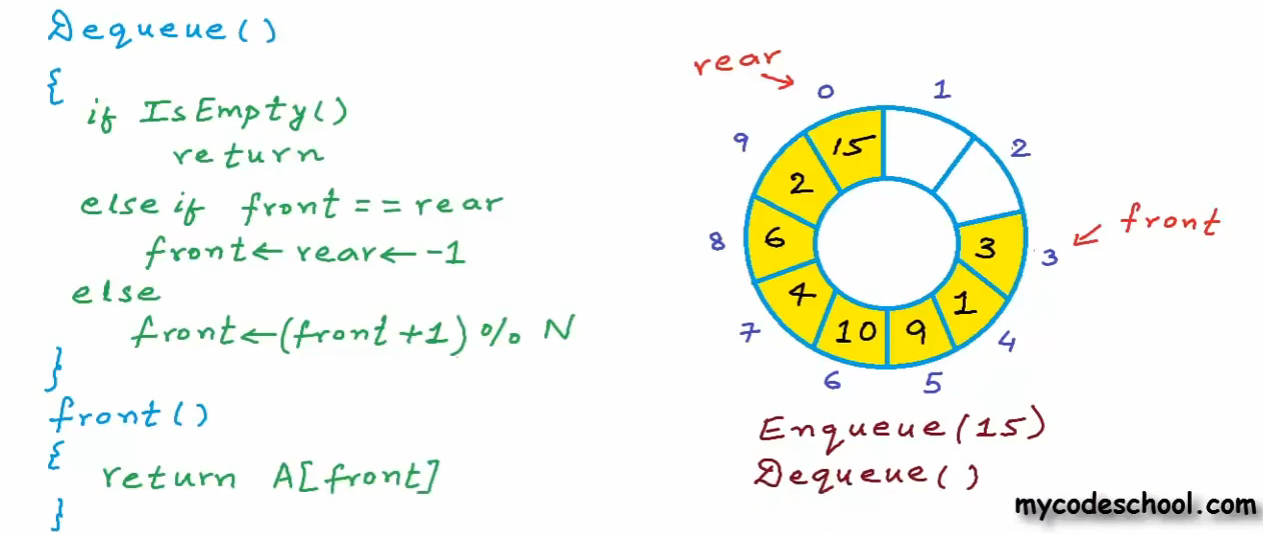 Dequeue()
{
if IsEmpty()
return
else if front == rear
front ← rear ← -1
else
front ← (front +1) % N
}
front()
{
return A[front]
}
rear
0
1
2
3
4
5
6
7
8
9
front
15
3
1
9
10
4
6
2
Enqueue(15)
Dequeue()
mycodeschool.com